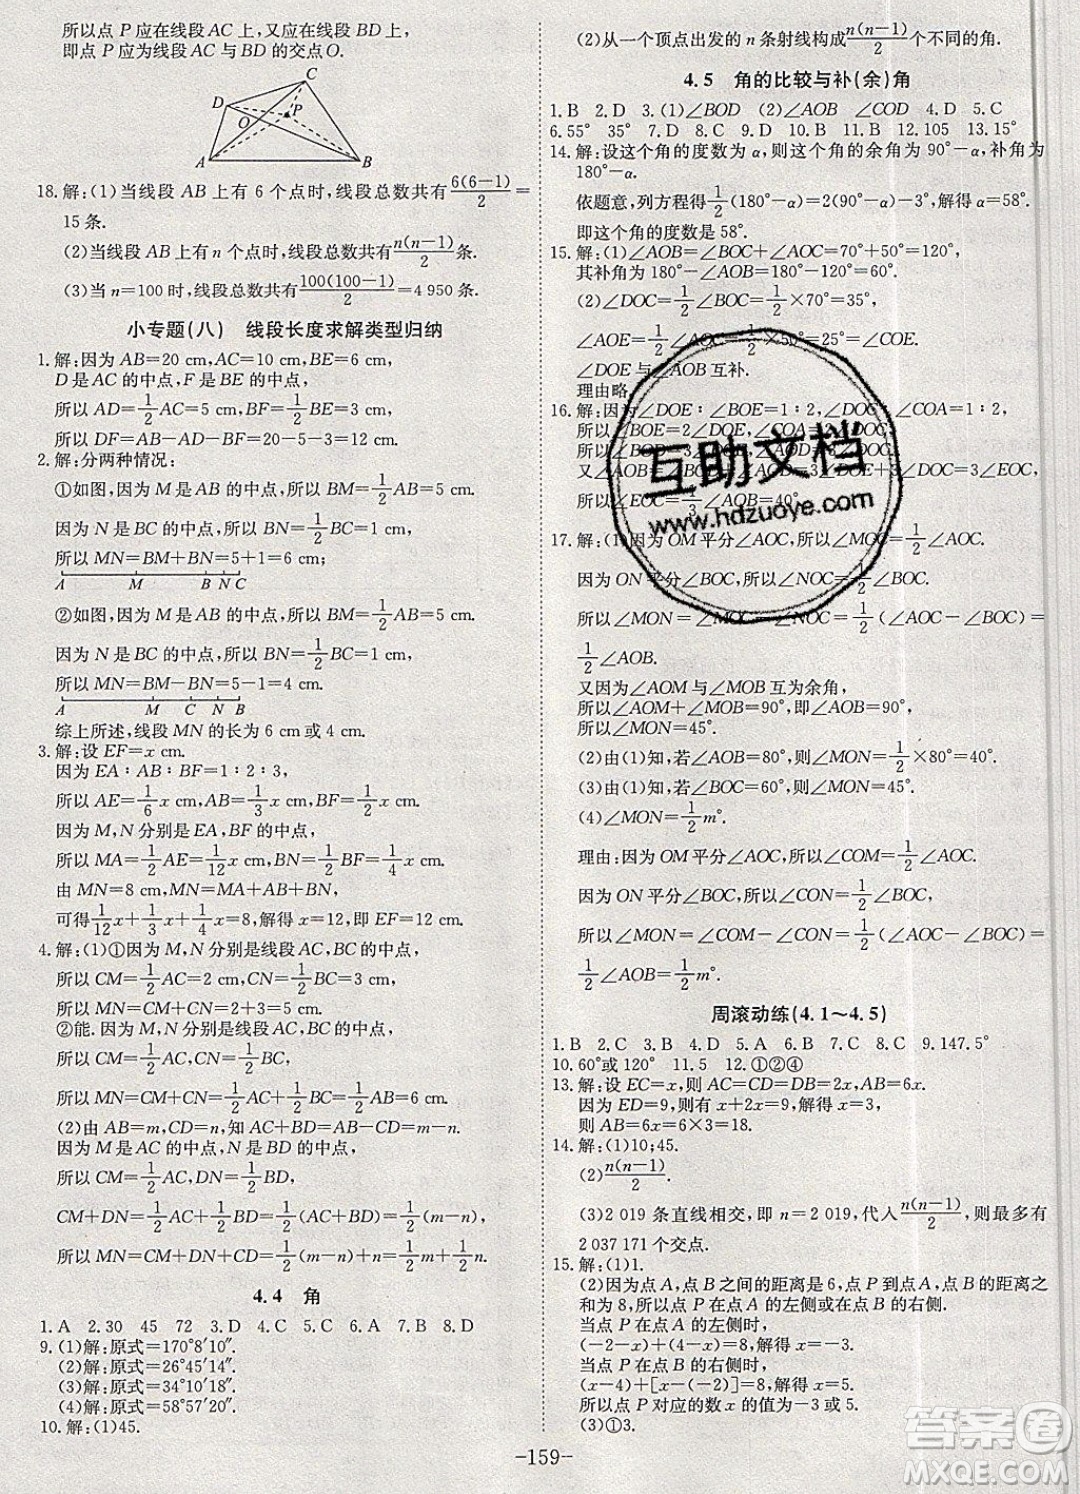 所以点 P 应在线段 AC 上,又应在线段 BD 上,
即点 P 应为线段 AC 与 BD 的交点O.
C
D
O
P
A
B
18.解:(1)当线段 AB 上有 6 个点时,线段总数共有6(6-1)/2=
15 条.
(2)当线段 AB 上有 n 个点时,线段总数共有n(n-1)/2条.
(3)当 n=100 时,线段总数共有100(100-1)/2=4 950 条.
小专题(八) 线段长度求解类型归纳
1.解:因为 AB=20 cm,AC=10 cm,BE=6 cm,
D 是 AC 的中点,F 是 BE 的中点,
所以 AD=1/2AC=5 cm,BF=1/2BE=3 cm,
所以 DF=AB-AD-BF=20-5-3=12 cm.
2.解:分两种情况:
①如图,因为 M 是 AB 的中点,所以 BM=1/2AB=5 cm.
因为 N 是 BC 的中点,所以 BN=1/2BC=1 cm,
所以 MN=BM+BN=5+1=6 cm.
A M B N C
②如图,因为 M 是 AB 的中点,所以 BM=1/2AB=5 cm.
因为 N 是 BC 的中点,所以 BN=1/2BC=1 cm,
所以 MN=BM-BN=5-1=4 cm.
A M C N B
综上所述,线段 MN 的长为 6 cm 或 4 cm.
3.解:设 EF=x cm.
因为 EA∶AB∶BF=1∶2∶3,
所以 AE=1/6x cm,AB=1/3x cm,BF=1/2x cm.
因为 M,N 分别是 EA,BF 的中点,
所以 MA=1/2AE=1/12x cm,NB=1/2BF=1/4x cm.
由 MN=8 cm,MN=MA+AB+BN,
可得1/12x+1/3x+1/4x=8,解得 x=12,即 EF=12 cm.
4.解:(1)①因为 M,N 分别是线段 AC,BC 的中点,
所以 CM=1/2AC=2 cm,CN=1/2BC=3 cm,
所以 MN=CM+CN=2+3=5 cm.
②能.因为 M,N 分别是线段 AC,BC 的中点,
所以 CM=1/2AC,CN=1/2BC,
所以 MN=CM+CN=1/2AC+1/2BC=1/2AB=1/2a cm.
(2)由 AB=m,CD=n,知 AC+BD=AB-CD=m-n.
因为 M 是 AC 的中点,N 是 BD 的中点,
所以 CM=1/2AC,DN=1/2BD,
CM+DN=1/2AC+1/2BD=1/2(AC+BD)=1/2(m-n),
所以 MN=CM+DN+CD=1/2(m-n)+n=1/2m+1/2n.
4.4 角
1.A 2.30 45 72 3.D 4.C 5.C 6.C 7.B 8.D
9.(1)解:原式=170°8′10″.
(2)解:原式=26°45′18″.
(3)解:原式=34°10′18″.
(4)解:原式=58°57′20″.
10.解:(1)45.
(2)从一个顶点出发的 n 条射线构成n(n-1)/2个不同的角.
4.5 角的比较与补(余)角
1.B 2.D 3.(1)∠BOD (2)∠AOB ∠COD 4.D 5.C
6.55° 35° 7.D 8.C 9.D 10.B 11.B 12.105 13.15°
14.解:设这个角的度数为 α,则这个角的余角为 90°-α,补角为
180°-α.
依题意,列方程得1/2(180°-α)=2(90°-α)-3°,解得 α=58°.
即这个角的度数是 58°.
15.解:(1)∠AOB=∠BOC+∠AOC=70°+50°=120°,
其补角为 180°-∠AOB=180°-120°=60°.
(2)∠DOC=1/2∠BOC=1/2×70°=35°,
∠AOE=1/2∠AOC=1/2×50°=25°.
∠DOE 与∠AOB 互补.
理由略.
16.解:因为∠DOE∶∠BOE=1∶2,∠DOC∶∠COA=1∶2,
所以∠BOE=2∠DOE,∠COA=2∠DOC,
所以∠BOD=3∠DOE,
又∠AOB=
所以∠EOC=1/3∠AOB=40°.
17.解:(1)因为 OM 平分∠AOC,所以∠MOC=1/2∠AOC.
因为 ON 平分∠BOC,所以∠NOC=1/2∠BOC.
所以∠MON=∠MOC-∠NOC=1/2(∠AOC-∠BOC)=
1/2∠AOB.
又因为∠AOM 与∠MOB 互为余角,
所以∠AOM+∠MOB=90°,即∠AOB=90°,
所以∠MON=45°.
(2)由(1)知,若∠AOB=80°,则∠MON=1/2∠AOB=40°.
(3)由(1)知,∠MON=45°.
(4)∠MON=1/2m°.
理由:因为 OM 平分∠AOC,所以∠COM=1/2∠AOC.
因为 ON 平分∠BOC,所以∠CON=1/2∠BOC,
所以∠MON=∠COM-∠CON=1/2(∠AOC-∠BOC)=
1/2∠AOB=1/2m°.
周滚动练(4.1～4.5)
1.B 2.C 3.B 4.D 5.A 6.B 7.C 8.C 9.147.5°
10.60°或 120° 11.5 12.①②④
13.解:设 EC=x,则 AC=CD=DB=2x,AB=6x.
因为 ED=9,则 x+2x=9,解得 x=3,
则 AB=6x=6×3=18.
14.解:(1)10;45.
(2)n(n-1)/2.
(3)2 019 条直线相交,即 n=2 019,代入n(n-1)/2,则最多有
2 037 171 个交点.
15.解:(1)1.
(2)因为点 A、点 B 之间的距离是 6,点 P 到点 A、点 B 的距离之
和为 8,所以点 P 在点 A 的左侧或在点 B 的右侧.
当点 P 在点 A 的左侧时,
(-2-x)+(4-x)=8,解得 x=-3.
当点 P 在点 B 的右侧时,
(x-4)+[x-(-2)]=8,解得 x=5.
所以点 P 对应的数 x 的值为-3 或 5.
(3)①3.
-159-
互助文档
www.hdzuoye.com
答案圈
MXQE.COM